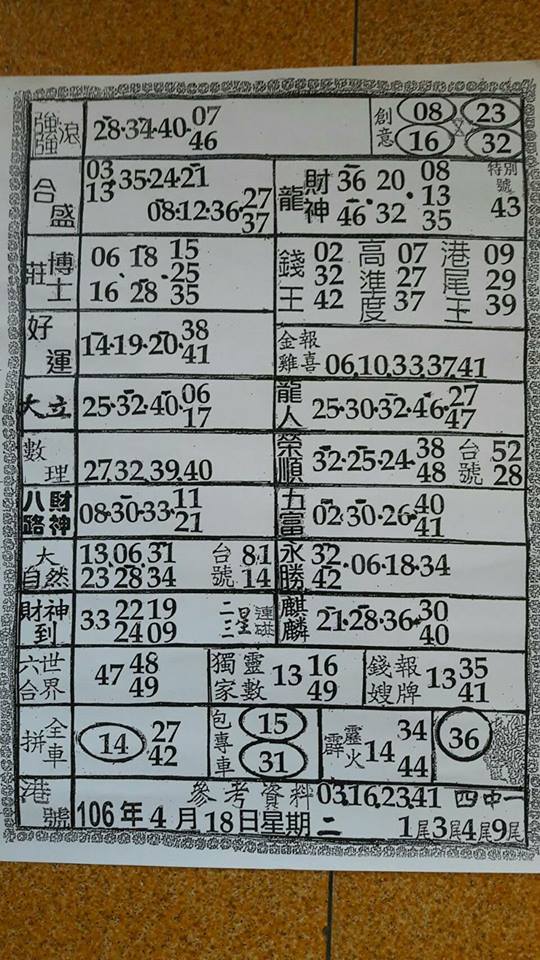 強強滾 28·34·40·07 46
創意 08 23 16 32
合盛 03 13·35·24·21 08·12·36·27 37
龍財神 36 46·20 32·08 13 35 特別號 43
莊博士 06 16·18 28·15 25 35
錢王 02 32 42 高準度 07 27 37 港尾王 09 29 39
好運 14·19·20·38 41
金雞報喜 06,10,33,37,41
大立 25·32·40·06 17
龍人 25·30·32·46·27 47
數理 27,32,39,40
榮順 32·25·24·38 48 台號 52 28
八路財神 08·30·33·11 21
五富 02·30·26·40 41
大自然 13,06,31 23 28 34 台號 81 14
永勝 32 42·06·18·34
財神到 33 22 19 24 09 二三星連碰
麒麟 21·28·36·30 40
六台世界 47 48 49
獨家靈數 13 16 49
錢嫂報牌 13 35 41
拼全車 14 27 42
包專車 15 31
霹靂火 14 34 44
36
港號 參考資料 03,16,23,41 四中一
106年4月18日星期二 1尾3尾4尾9尾